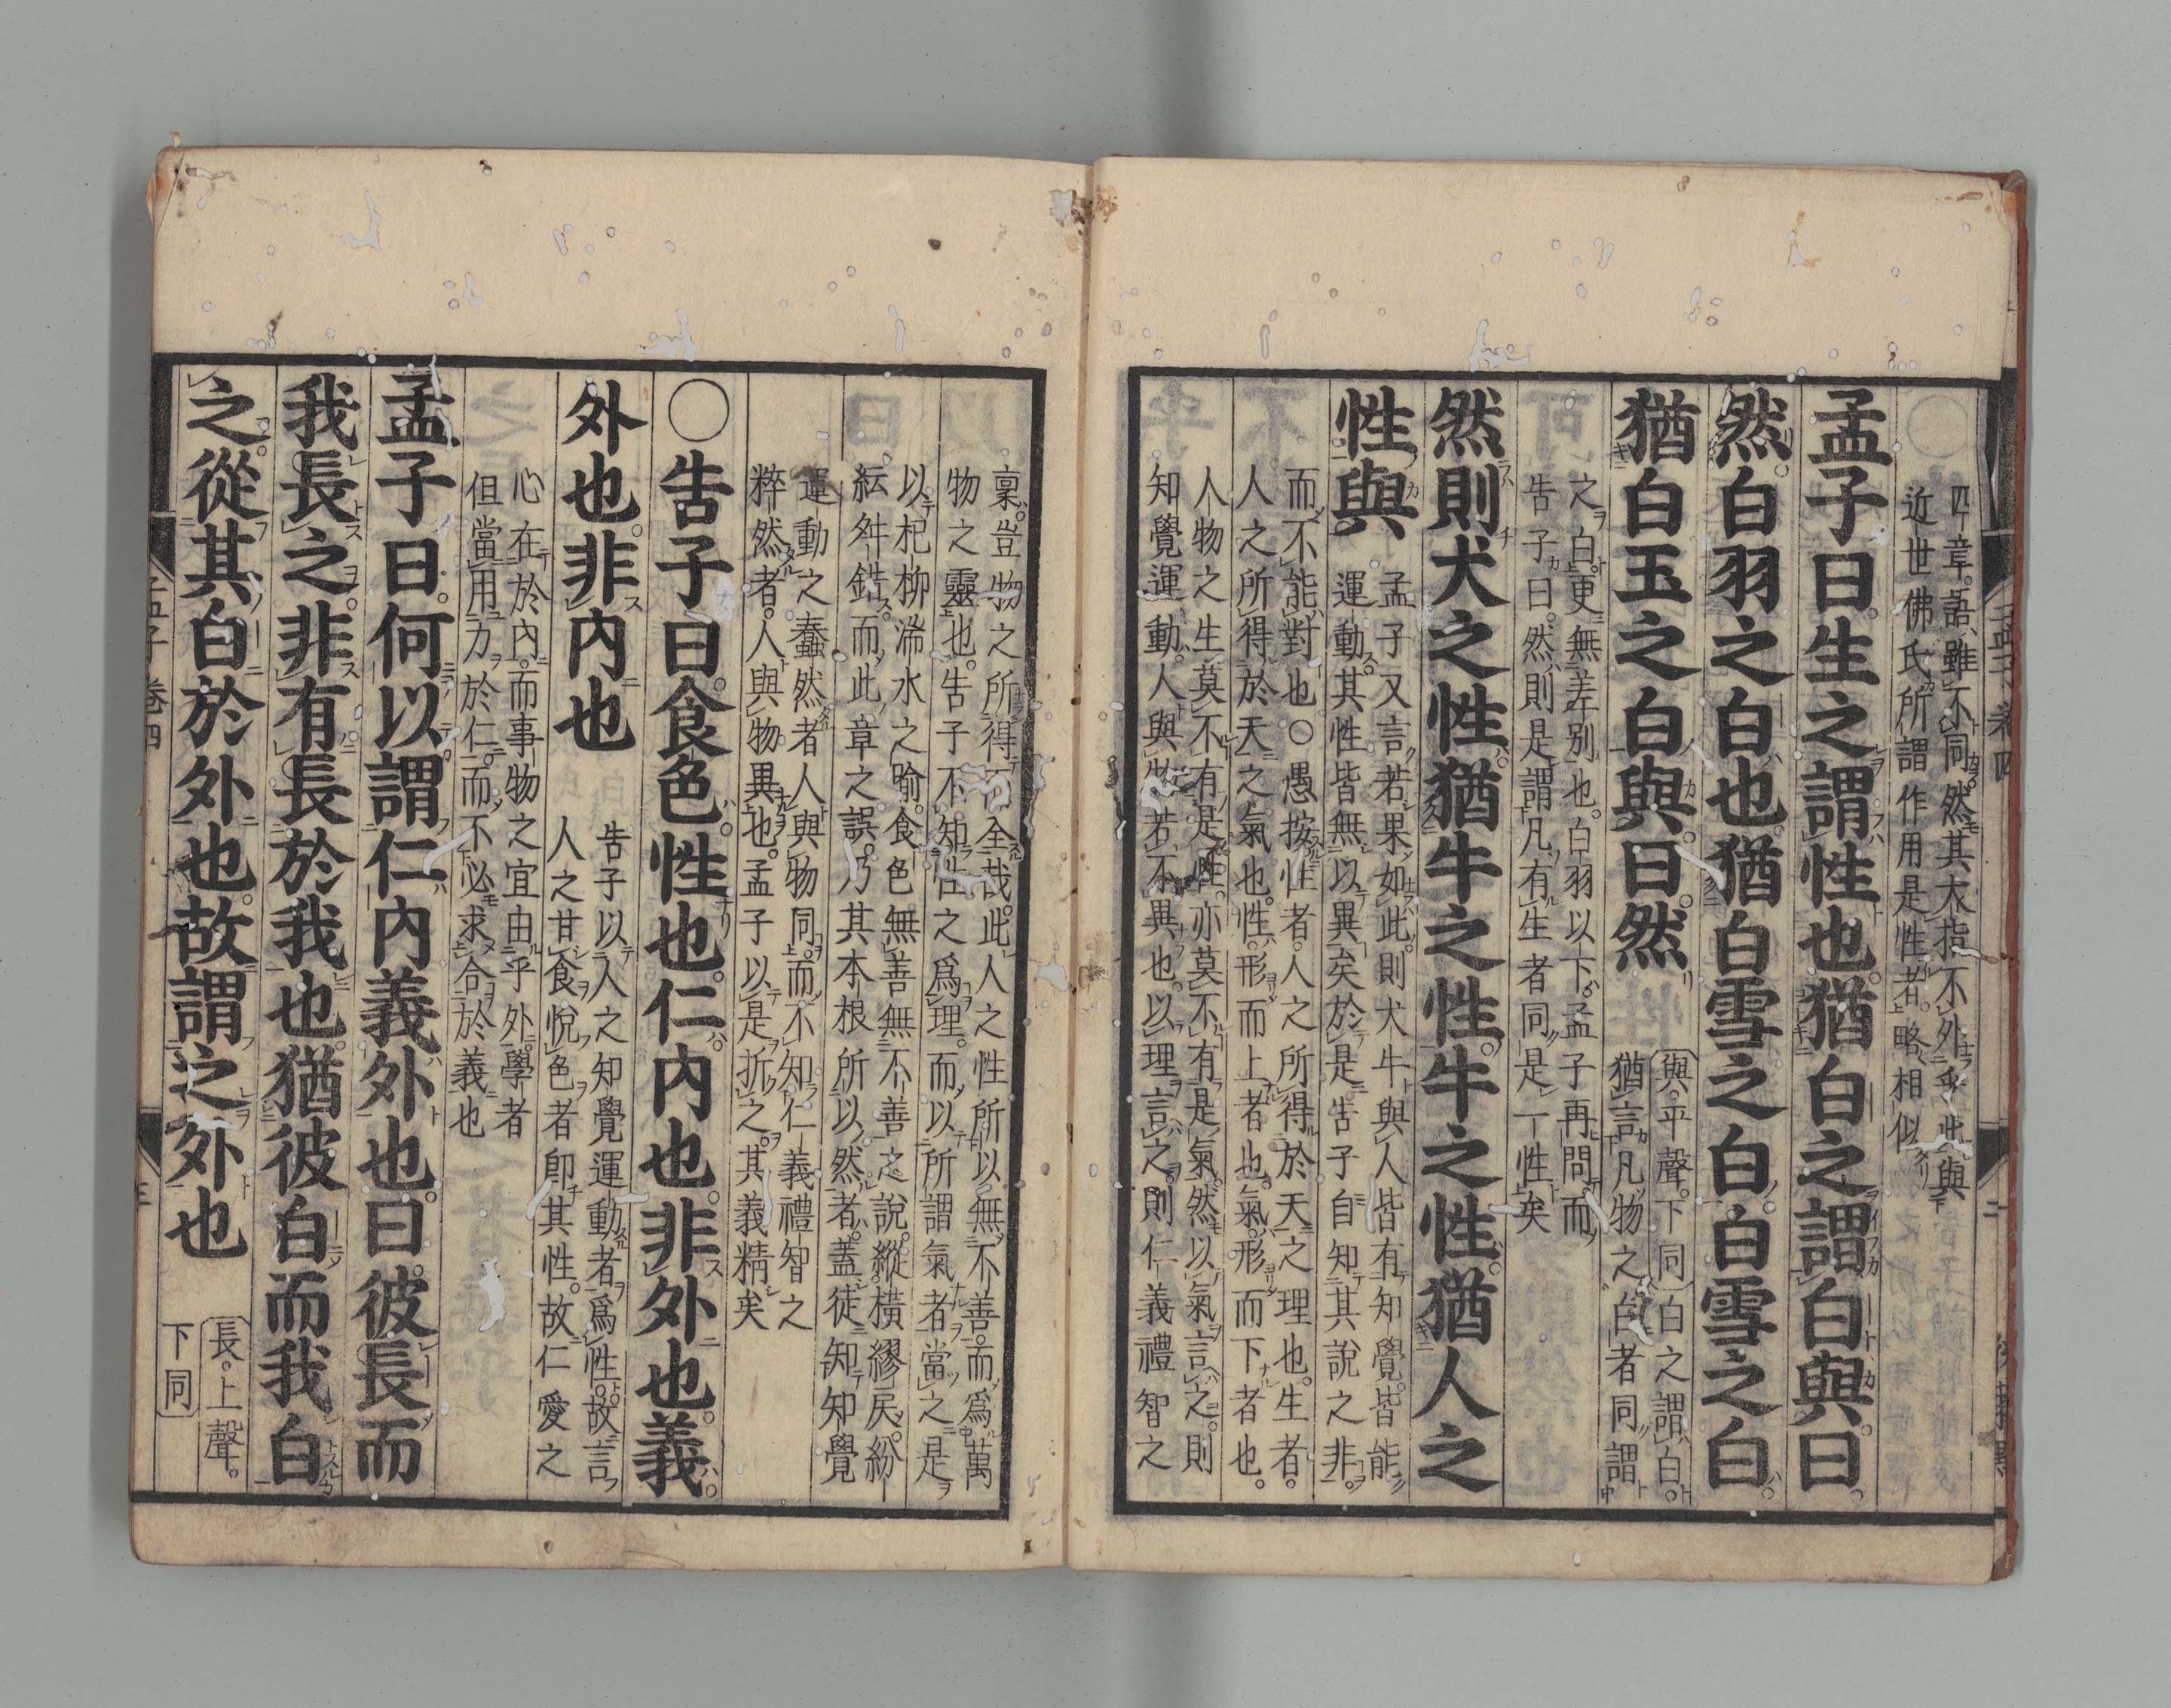 四章。語雖不同。然其大指不外乎此與
近世佛氏所謂作用是性者。略相似
孟子曰。生之謂性也。猶白之謂白與。曰。
然。白羽之白也。猶白雪之白。白雪之白。
猶白玉之白與。曰。然
與。平聲。下同 白之謂白。
猶言凡物之白者同謂
之白。更無差別也。白羽以下。孟子再問而
告子曰。然。則是謂凡有生者同是一性矣
然則犬之性。猶牛之性。牛之性。猶人之
性與
孟子又言若果如此。則犬牛與人皆有知覺。皆能
運動。其性皆無以異矣於是告子自知其說之非。
而不能對也〇愚按性者。人之所得於天之理也。生者。
人之所得於天之氣也。性形而上者也。氣形而下者也。
人物之生。莫不有是性。亦莫不有是氣。然以氣言之。則
知覺運動。人與物若不異也。以理言之。則仁義禮智之
稟。豈物之所得而全哉。此人之性所以無不善。而爲萬
物之靈也。告子不知性之爲理。而以所謂氣者當之是
以杞柳湍水之喻。食色無善無不善之說。縱橫繆戾。紛
紜舛錯。而此章之誤。乃其本根所以然者。蓋徒知知覺
運動之蠢然者人與物同。而不知仁義禮智之
粹然者。人與物異也。孟子以是折之。其義精矣
〇告子曰。食色。性也。仁。內也。非外也。義。
外也。非內也
告子以人之知覺運動者爲性。故言
人之甘食悅色者即其性。故仁愛之
心在於內。而事物之宜由乎外。學者
但當用力於仁。而不必求合於義也
孟子曰。何以謂仁內義外也。曰。彼長而
我長之。非有長於我也。猶彼白而我白
之。從其白於外也。故謂之外也
長。上聲。
下同
孟子 卷四